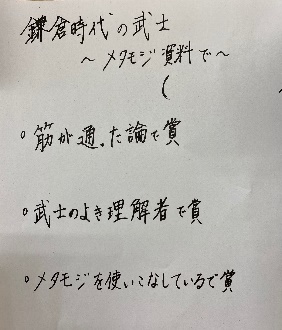 鎌倉時代の武士
～メタモジ資料で～
（
。筋が通った論で賞
。武士のよき理解者で賞
。メタモジを使いこなしているで賞